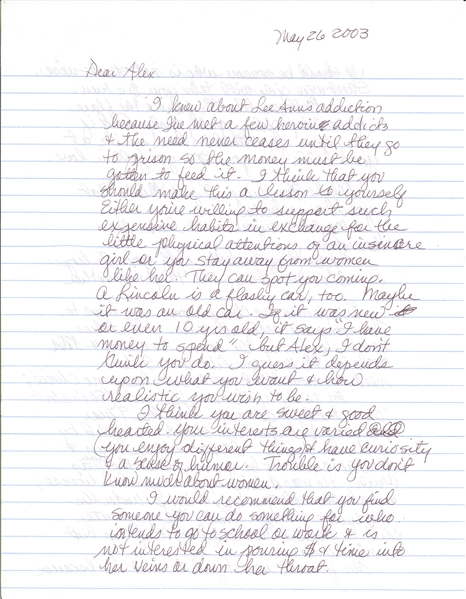 May 26 2003
Dear Alex
I knew about Lee Ann's addiction
because I've met a few heroin addicts
& the need never ceases until they go
to prison so the money must be
gotten to feed it. I think that you
should make this a lesson to yourself
Either you're willing to support such
expensive habits in exchange for the
little physical attentions of an insincere
girl or you stay away from women
like her. They can spot you coming.
A Lincoln is a flashy car, too. Maybe
it was an old car. If it was new
or even 10 yrs old, it says "I have
money to spend" but Alex, I don't
think you do. I guess it depends
upon what you want & how
realistic you wish to be.
I think you are sweet & good
hearted. your interests are varied
(you enjoy different things & have curiosity
& a sense of humor. Trouble is you don't
know much about women.
I would recommend that you find
someone you can do something for who
intends to go to school or work & is
not interested in pouring $ & time into
her veins or down her throat.